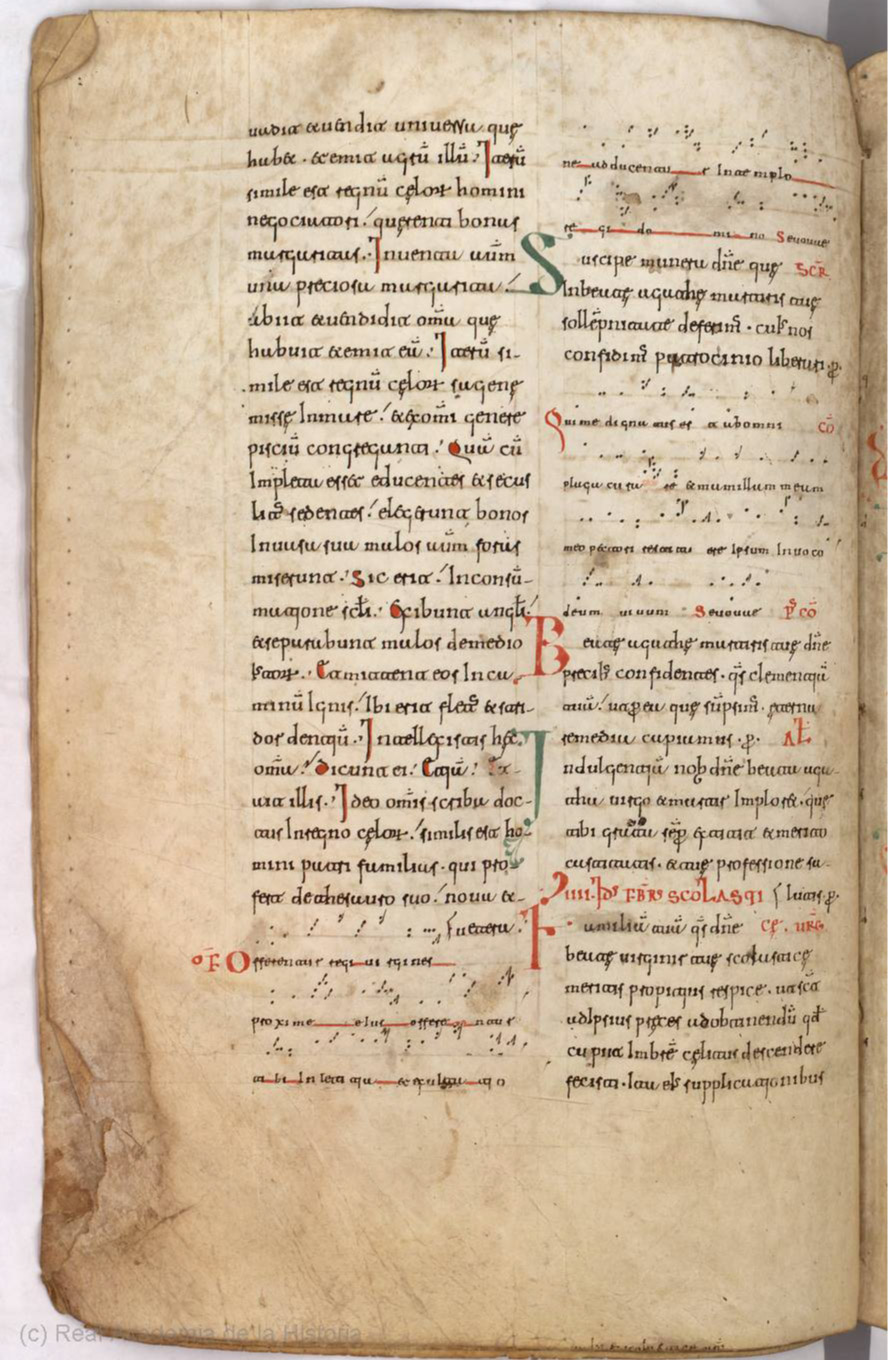 uadit & uendit uniuersa quę
habet . & emit agrū illū. Iterū
simile est regnū cęlorꝝ homini
negociatori. querenti bonas
margaritas. Inuenta aūm
una preciosa margarita.
abiit & uendidit omā quę
habuit & emit eā. Iterū si-
mile est regnū cęlorꝝ sagenę
missę in mare. & ex omī genere
pisciū congreganti. Quā cū
impleta ess& educentes & secus
litꝰ sedentes. elegerunt bonos
in uasa sua malos aūm foras
miserunt. Sic erit. in consū-
matione scłi. Exibunt angłi.
& separabunt malos de medio
& mittent eos in ca-
minū ignis. ibi erit fletꝰ & stri-
dor dentiū. Intellexistis hęc
omā. Dicunt ei. Etiā.
illis. Ideo omīs scriba doc-
tus in regno cęlorꝝ. similis est ho-
mini patri familias. qui pro-
fert de thesauro suo. noua &
uetera.
OF Offerentur regi uirgines
proxime eius offerentur
tibi in leticia & exultatio
ne adducentur in templo
regi domino Seuouae
Suscipe munera dn̄e quę SCR
in beatę agathę martiris tuę
sollēpnitate deferim̄. cuius nos
confidim̄ patrocinio liberari. ꝑ.
Qui me dignatus es ab omni CŌ
plaga curare & mamillam meam
meo pectori restituere ipsum inuoco
deum uiuum Seuouae P̄ CŌ
Beatę agathę martiris tuę dn̄e
precibus confidentes. qs̄ clementiā
tuā. ut per ea quę sūpsim̄. ęterna
remedia capiamus. ꝑ. AŁ
Indulgentiā nob̄ dn̄e beata aga-
tha uirgo & martir implor&. quę
tibi grata sēp extitit & merito
castitatis. & tuę professione
uirtutis. ꝑ.
IIII. ID̄S FEBR̄S SCOLASTI
Familiā tuā qs̄ dn̄e CĘ. UIRḠ.
beatę uirginis tuę scolasticę
meritis propitius respice. ut sicut
ad ipsius pręces ad obtinendū qd̄
cupiit imbrē cęlitus descendere
fecisti. ita eius supplicationibus
(c) Real Academia de la Historia